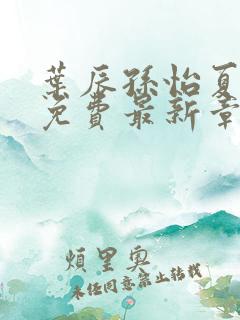 葉辰孫怡夏
免費最新章
煩里奧
未經同意禁止轉載